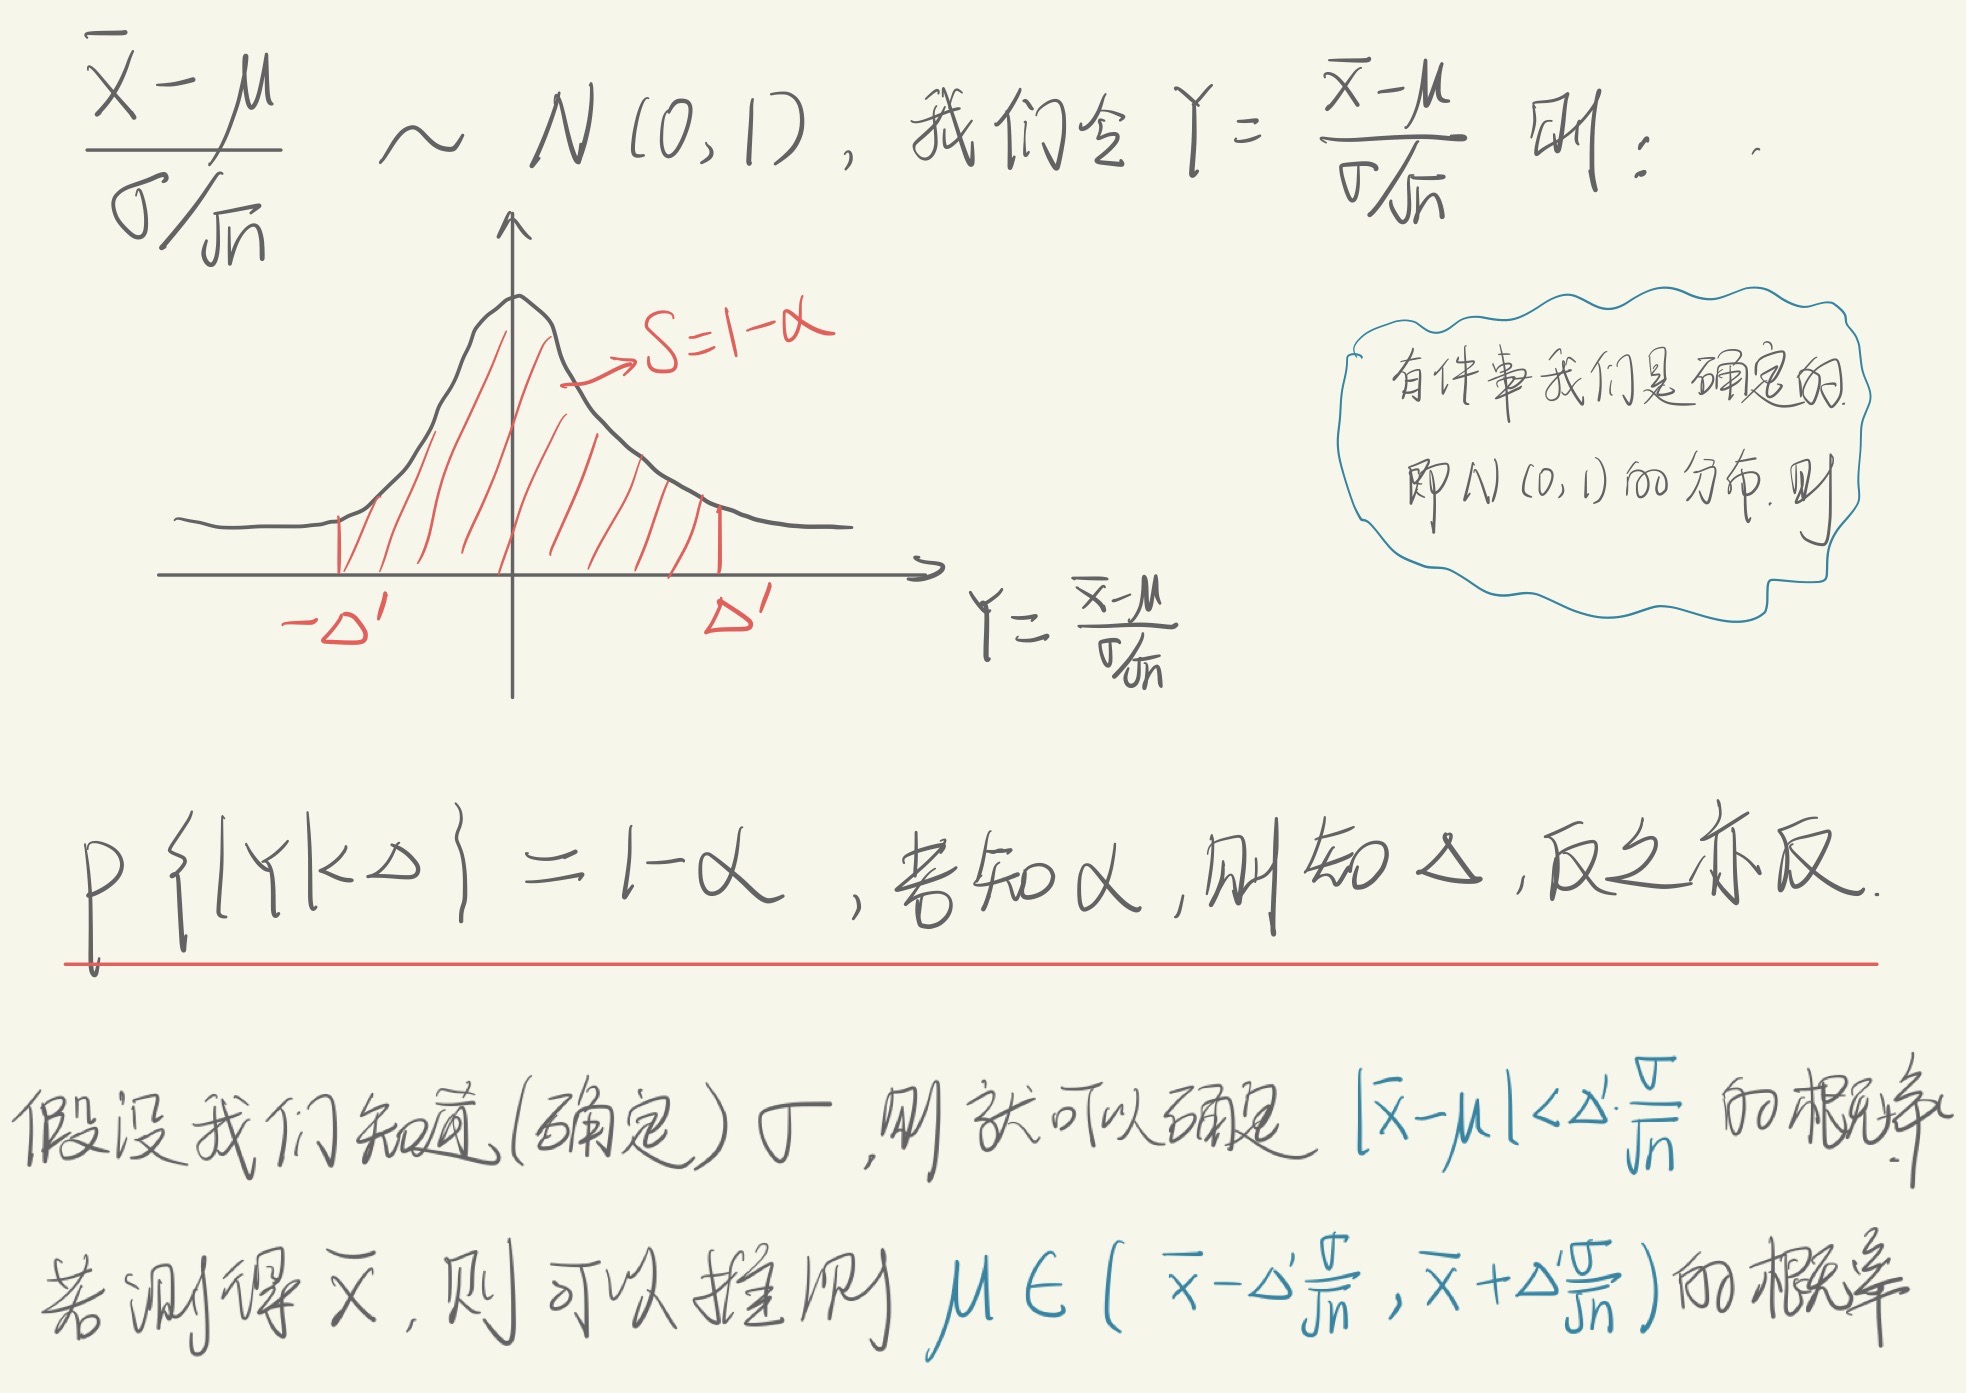 x̄-μ / σ/√n ~ N(0,1), 我们令 Y= x̄-μ / σ/√n 则:
S=1-α
有件事我们是确定的.
即N(0,1)的分布.则
-Δ' Δ'
Y= x̄-μ / σ/√n
P{|Y|<Δ}=1-α ,若知α,则知Δ,反之亦反.
假设我们知道(确定)σ,则就可以确定 |x̄-μ|<Δ'·σ/√n 的概率.
若测得x̄,则可以推测 μ∈( x̄-Δ'σ/√n , x̄+Δ'σ/√n )的概率